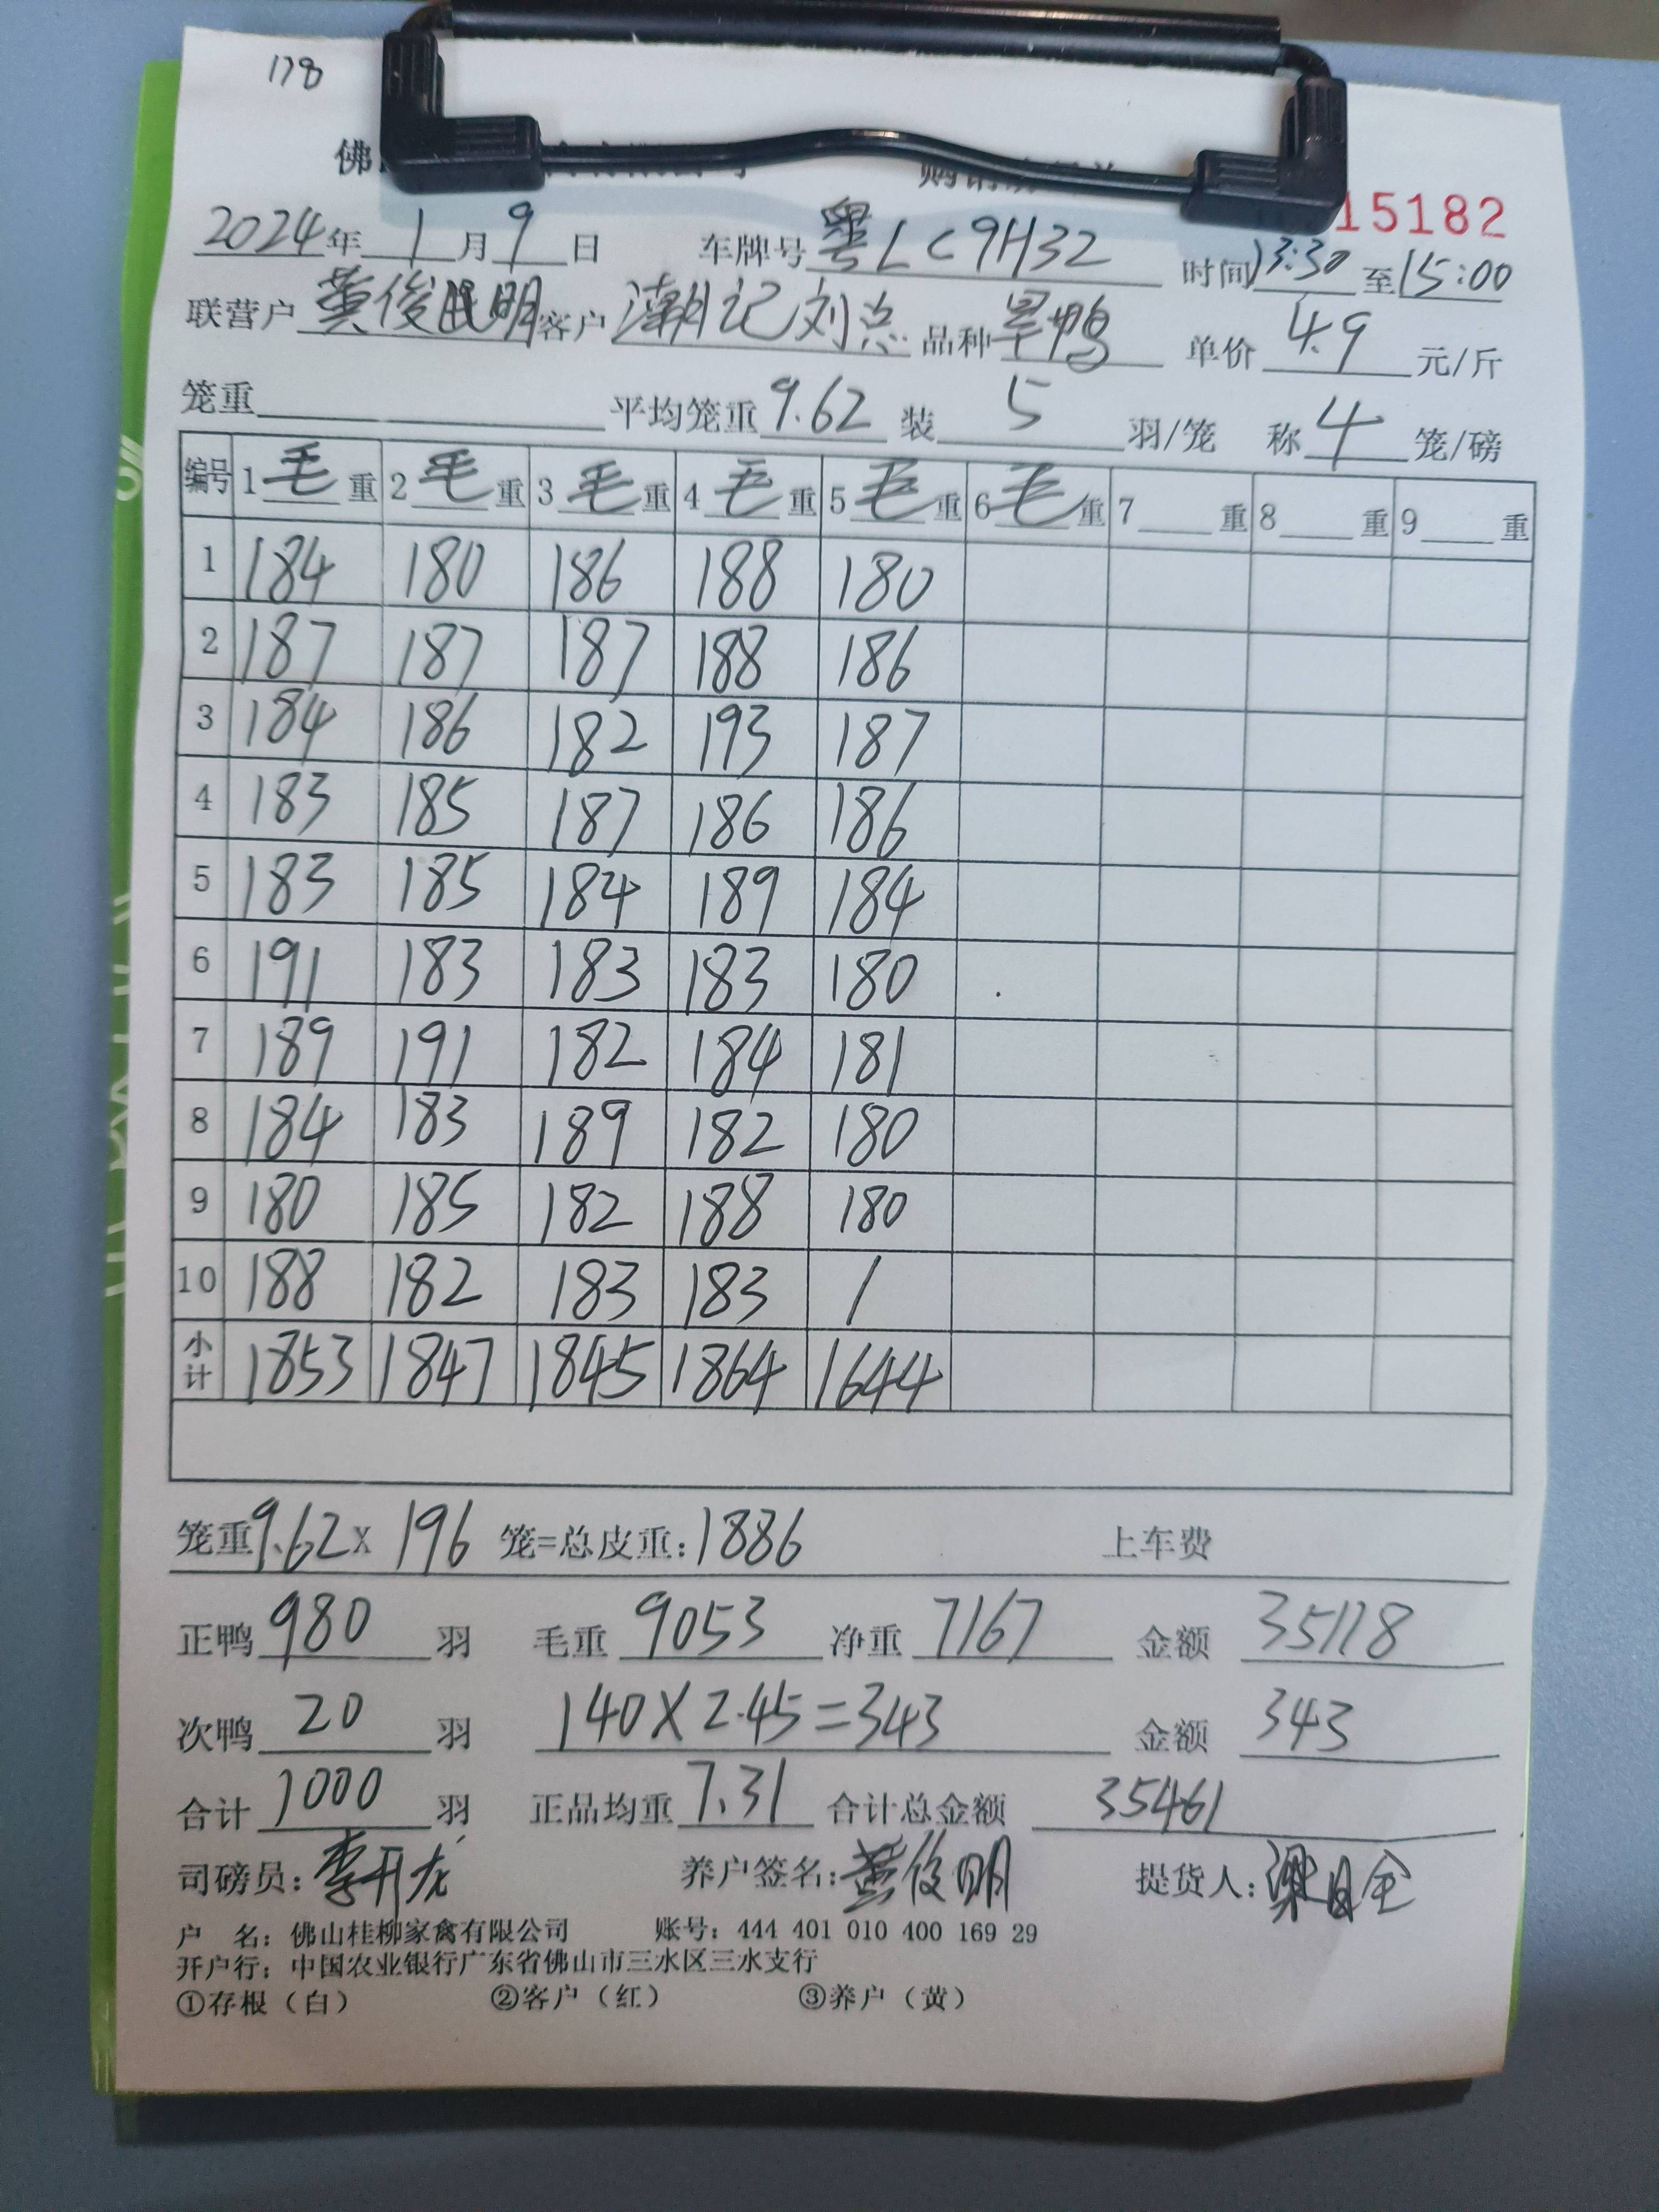 178
佛
15182
2024年1月9日 车牌号粤LC9H32 时间13:30至15:00
联营户 黄俊明 客户 潮记刘点 品种旱鸭 单价 4.9 元/斤
笼重 平均笼重9.62 装 5 羽/笼 称4笼/磅
编号 1毛重 2毛重 3毛重 4毛重 5毛重 6毛重 7重 8重 9重
1 184 180 186 188 180
2 187 187 187 188 186
3 184 186 182 193 187
4 183 185 187 186 186
5 183 185 184 189 184
6 191 183 183 183 180
7 189 191 182 184 181
8 184 183 189 182 180
9 180 185 182 188 180
10 188 182 183 183 /
小计 1853 1847 1845 1864 1644
笼重9.62X 196 笼=总皮重:1886 上车费
正鸭980羽 毛重9053 净重7167 金额35118
次鸭20羽 140X2.45=343 金额343
合计1000羽 正品均重7.31 合计总金额 35461
司磅员:李开龙 养户签名:黄俊明 提货人:梁
户 名:佛山桂柳家禽有限公司 账号:444 401 010 400 169 29
开户行:中国农业银行广东省佛山市三水区三水支行
①存根(白) ②客户(红) ③养户(黄)